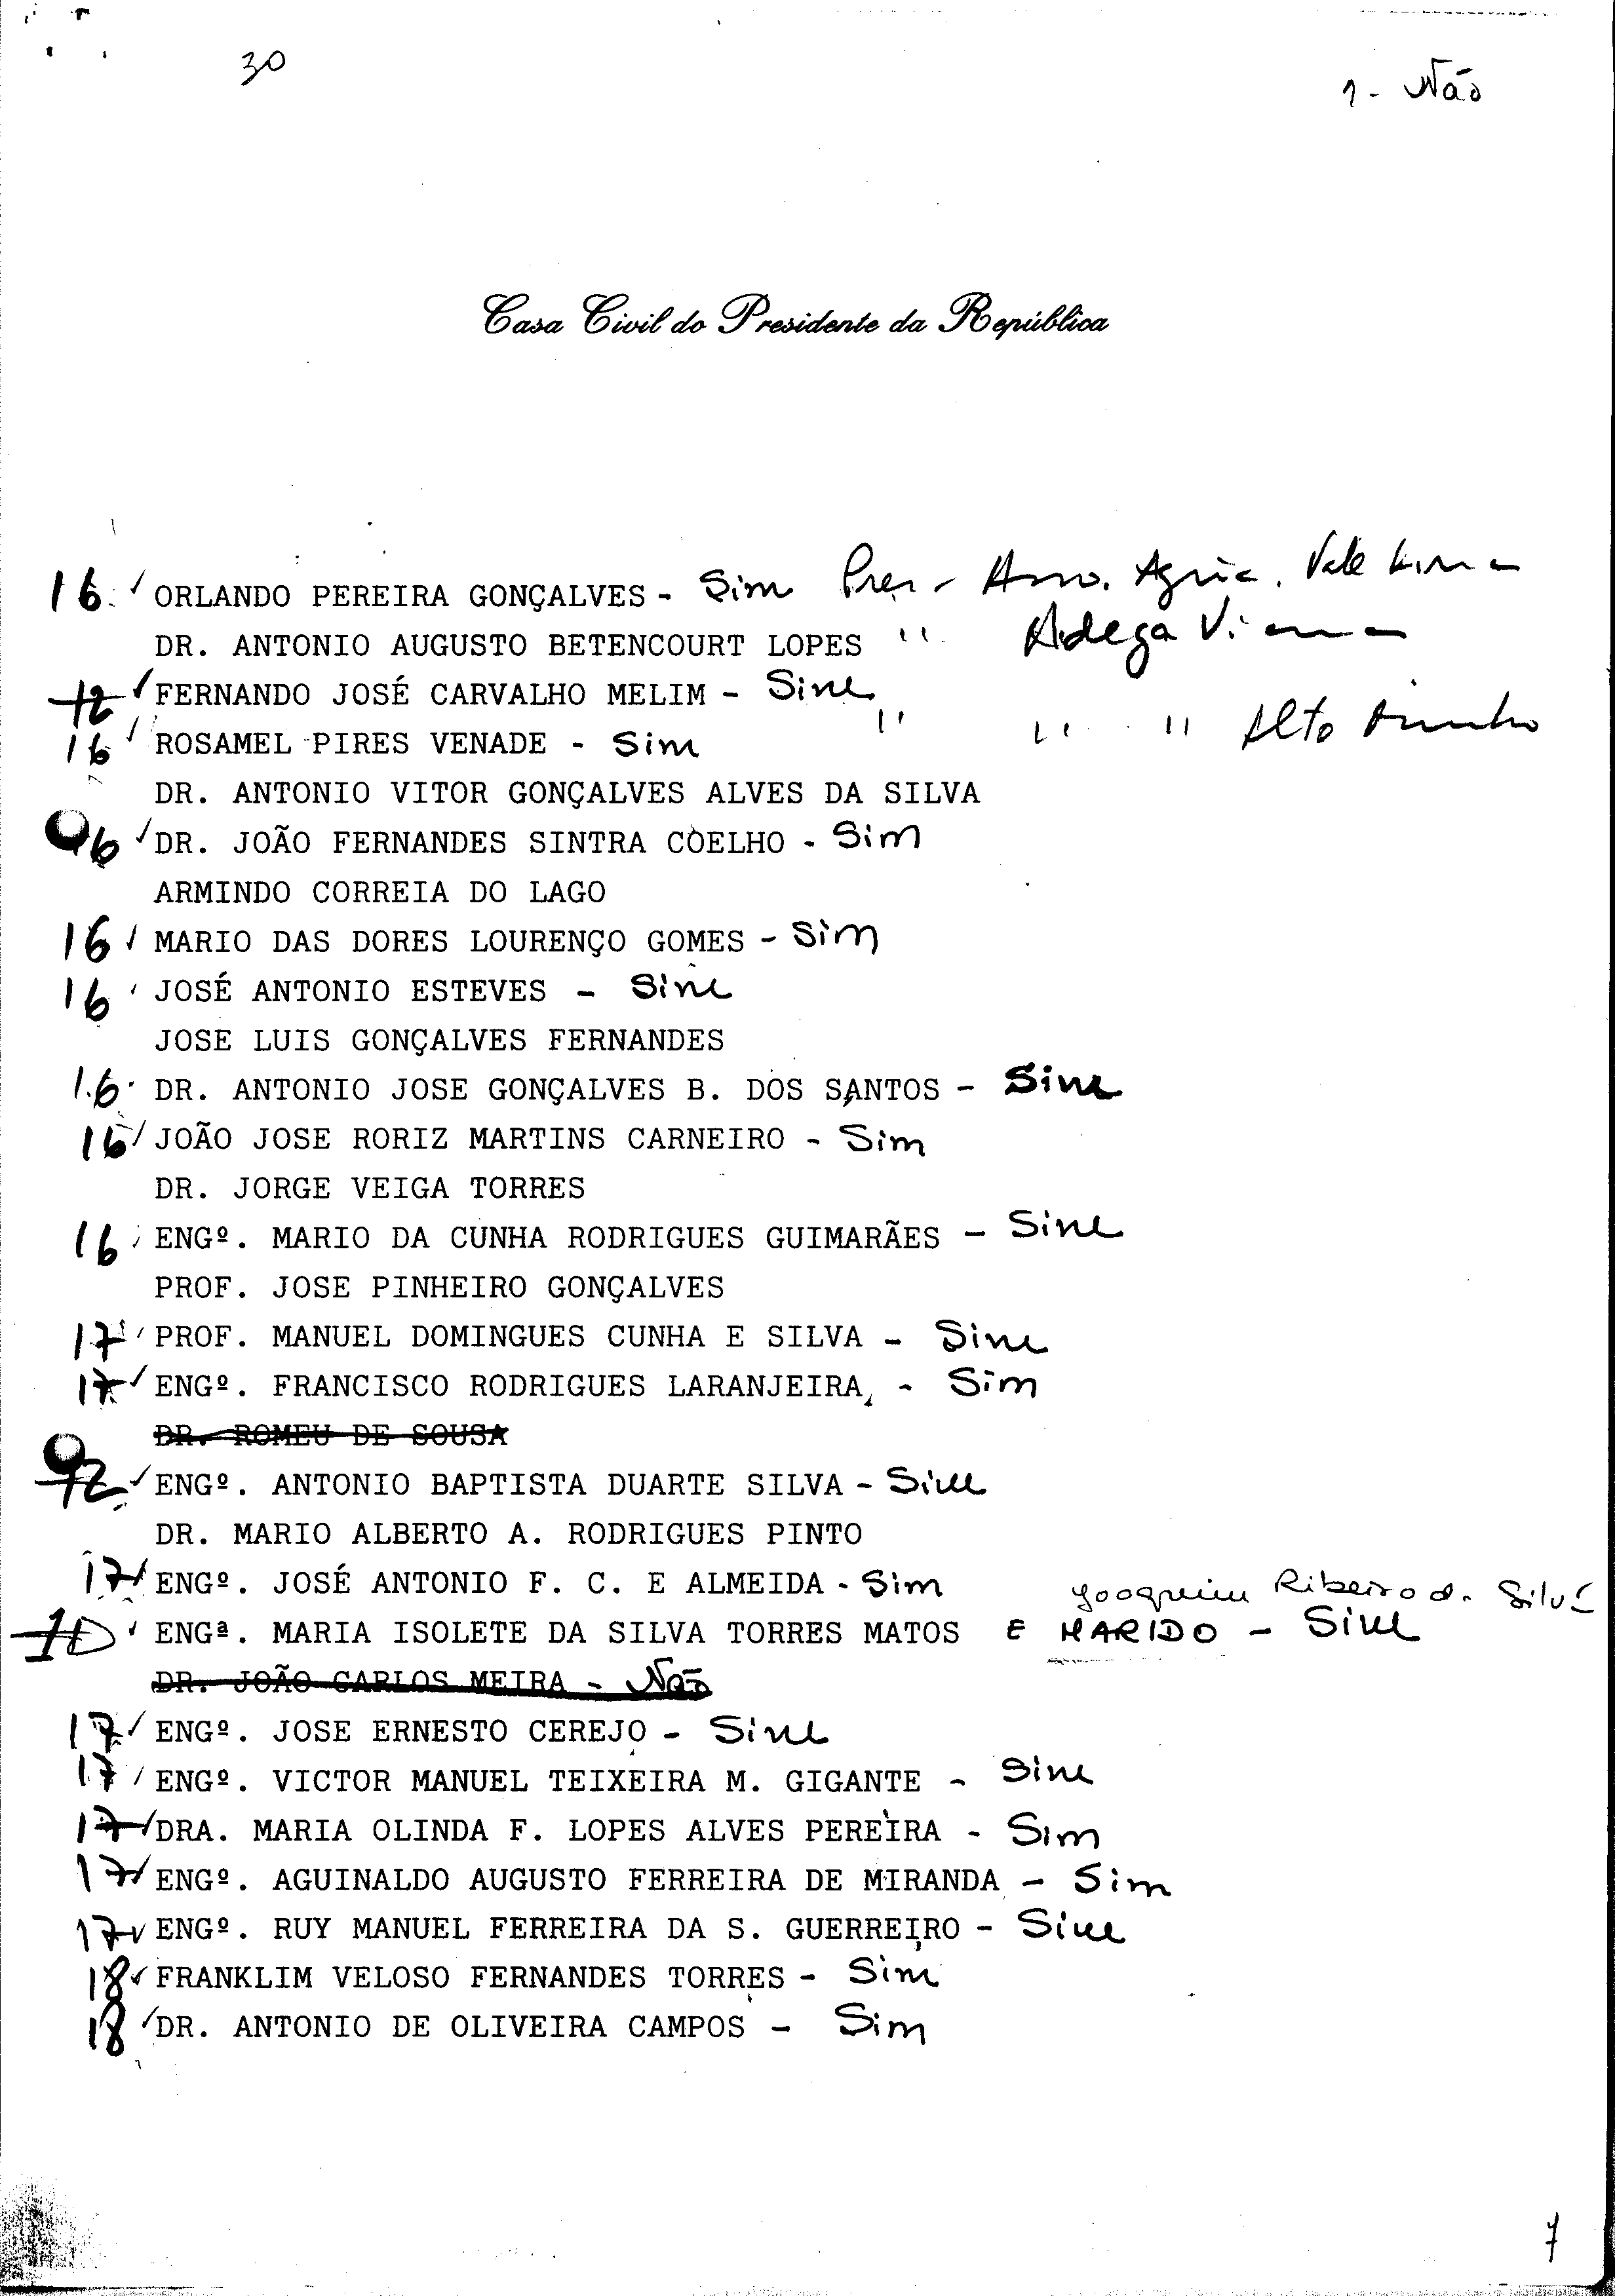 30
1 - Não
Casa Civil do Presidente da República
16 ✓ ORLANDO PEREIRA GONÇALVES - Sim Pres - Asso. Agric. Vale Lima
DR. ANTONIO AUGUSTO BETENCOURT LOPES " Adega Viana
12 ✓ FERNANDO JOSÉ CARVALHO MELIM - Sim
16 ✓ ROSAMEL PIRES VENADE - Sim " " " Alto Minho
DR. ANTONIO VITOR GONÇALVES ALVES DA SILVA
✓ DR. JOÃO FERNANDES SINTRA COELHO - Sim
ARMINDO CORREIA DO LAGO
16 ✓ MARIO DAS DORES LOURENÇO GOMES - Sim
16 JOSÉ ANTONIO ESTEVES - Sim
JOSE LUIS GONÇALVES FERNANDES
16 DR. ANTONIO JOSE GONÇALVES B. DOS SANTOS - Sim
16 ✓ JOÃO JOSE RORIZ MARTINS CARNEIRO - Sim
DR. JORGE VEIGA TORRES
16 ✓ ENGº. MARIO DA CUNHA RODRIGUES GUIMARÃES - Sim
PROF. JOSE PINHEIRO GONÇALVES
17 ✓ PROF. MANUEL DOMINGUES CUNHA E SILVA - Sim
17 ✓ ENGº. FRANCISCO RODRIGUES LARANJEIRA - Sim
DR. ROMEU DE SOUSA
12 ✓ ENGº. ANTONIO BAPTISTA DUARTE SILVA - Sim
DR. MARIO ALBERTO A. RODRIGUES PINTO
17 ✓ ENGº. JOSÉ ANTONIO F. C. E ALMEIDA - Sim
Joaquim Ribeiro d. Silva
✓ ENGª. MARIA ISOLETE DA SILVA TORRES MATOS E MARIDO - Sim
DR. JOÃO CARLOS MEIRA - Não
17 ✓ ENGº. JOSE ERNESTO CEREJO - Sim
17 ✓ ENGº. VICTOR MANUEL TEIXEIRA M. GIGANTE - Sim
17 ✓ DRA. MARIA OLINDA F. LOPES ALVES PEREIRA - Sim
17 ✓ ENGº. AGUINALDO AUGUSTO FERREIRA DE MIRANDA - Sim
17 ✓ ENGº. RUY MANUEL FERREIRA DA S. GUERREIRO - Sim
18 ✓ FRANKLIM VELOSO FERNANDES TORRES - Sim
18 ✓ DR. ANTONIO DE OLIVEIRA CAMPOS - Sim
7